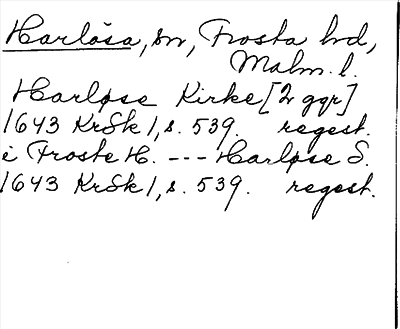 Harlösa, sn, Frosta hd,
Malm. l.
Harløse Kirke [2 ggr]
1643 KrSk 1, s. 539. regest.
i Froste H. --- Harløse S.
1643 KrSk 1, s. 539. regest.